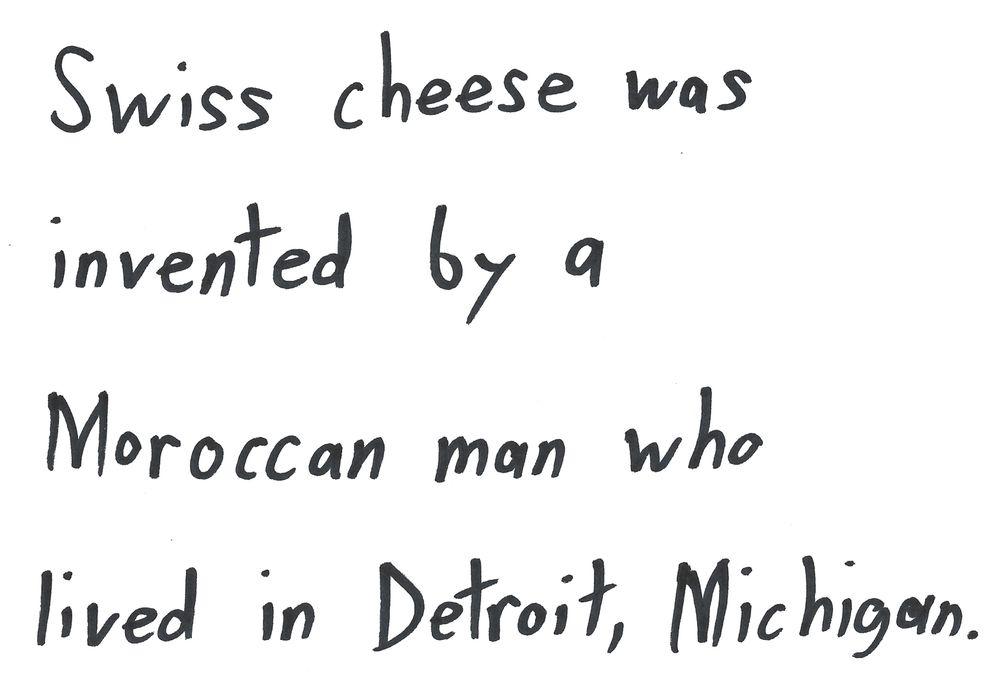 Swiss cheese was
invented by a
Moroccan man who
lived in Detroit, Michigan.